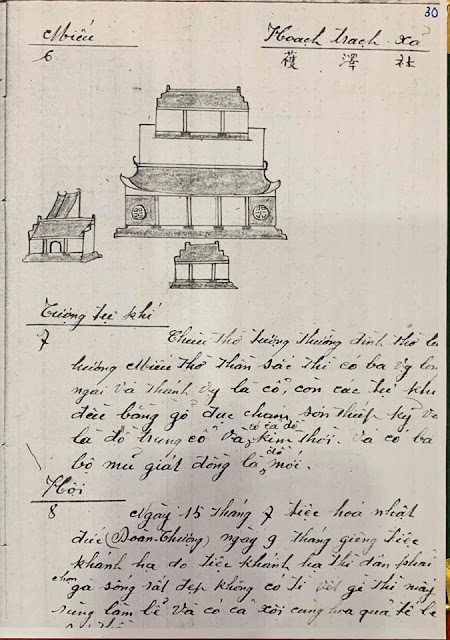 30
Miếu
Hoạch trạch xa
6
穫澤社
Tượng tự khí
7 Chùa thờ tượng thường đình thờ
hương Miếu thờ thần sắc thì có ba vỵ
ngai và thánh vỵ là cổ, còn các tự khí
đều bằng gỗ đục chạm sơn thiếp kỹ
là đồ trung cổ và có cả đồ kim thời. và có ba
bộ mũ giát đồng là đồ mới.
Hội
8 Ngày 15 tháng 7 tiệc hoá nhật
đức (Đoàn Thượng) ngày 9 tháng giêng tiệc
khánh hạ do tiệc khánh hạ thì dân phải
chọn gà sống rất đẹp không có tì vết gì thì mới
dùng làm lễ và có cả xôi cùng hoa quả tế lễ